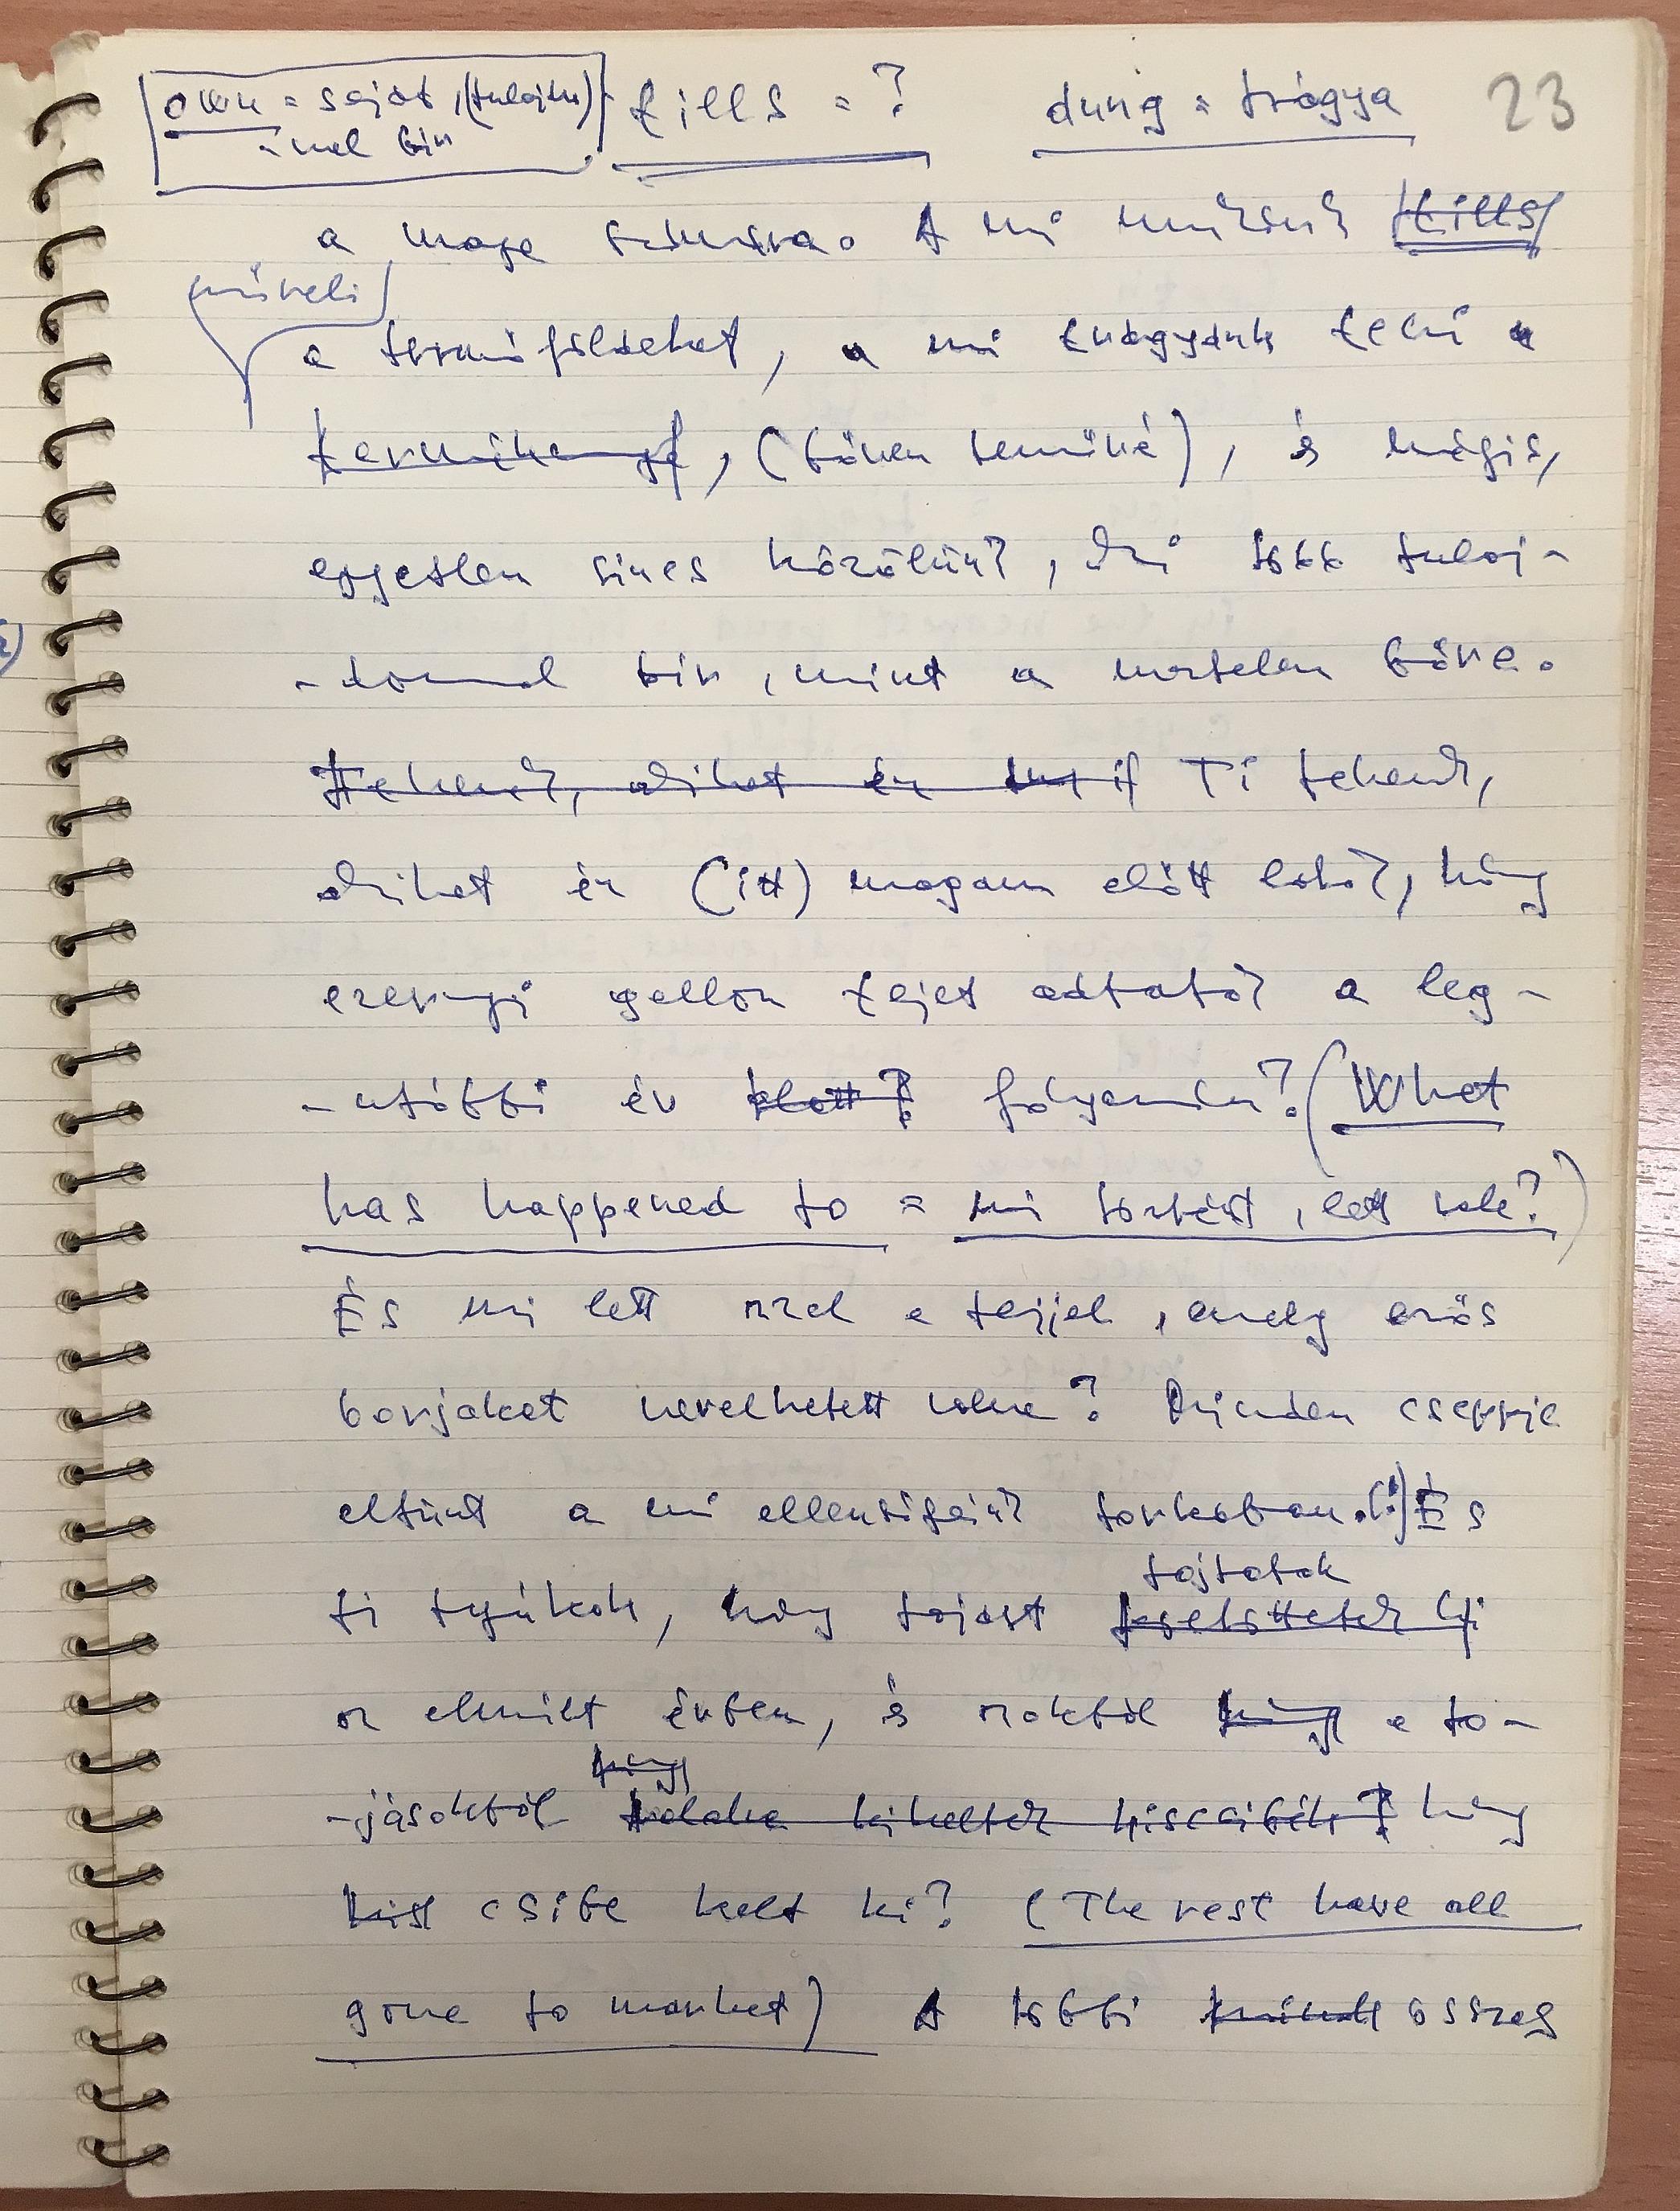 own = saját, (tulajdo)
-nal bir
tills = ?
dung = trágya
23
a maga számára. A mi munkánk tills
műveli
a termőföldeket, a mi trágyánk teszi a
termékennyé, (bőven termővé), és mégis,
egyetlen sincs közölünk, aki több tulaj-
-donnal bir, mint a meztelen bőre.
Tehenek, akiket én Ti tehenek,
akiket én (itt) magam előtt látok, hány
ezernyi gallon tejet adtatok a leg-
-utóbbi év előtt? folyamán? (What
has happened to = mi történt, lett vele?)
És mi lett azzal a tejjel, amely erős
borjakat nevelhetett volna? Minden cseppje
eltünt a mi ellenségeink torkában.(!) És
tojtatok
ti tyúkok, hány tojást ti
az elmúlt évben, és azokból hány a to-
hány
-jásokból kikeltek kiscsibék? hány
kis csibe kelt ki? (The rest have all
gone to market) A többi mind összeg